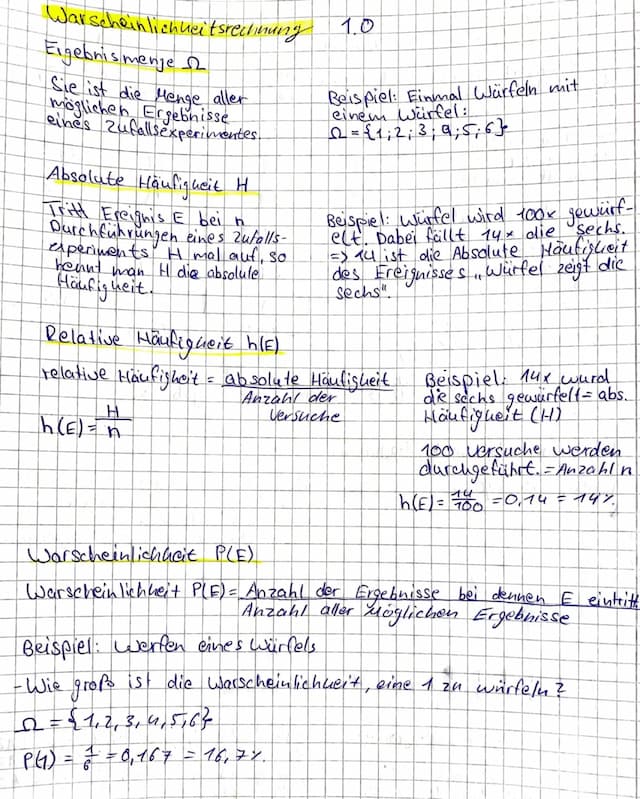 Warscheinlichkeitsrechnung 1.0
Ergebnismenge Ω
Sie ist die Menge aller
möglichen Ergebnisse
eines Zufallsexperimentes.
Beispiel: Einmal Würfeln mit
einem Würfel:
Ω = {1; 2; 3; 4; 5; 6}
Absolute Häufigkeit H
Tritt Ereignis E bei n
Durchführungen eines Zufalls-
experiments H mal auf, so
nennt man H die absolute
Häufigkeit.
Beispiel: Würfel wird 100x gewürf-
elt. Dabei fällt 14x die sechs.
=> 14 ist die Absolute Häufigkeit
des Ereignisses „Würfel zeigt die
sechs".
Relative Häufigkeit h(E)
relative Häufigkeit = absolute Häufigkeit
Anzahl der
Versuche
h(E) = H/n
Beispiel: 14x wurd
die sechs gewürfelt = abs.
Häufigkeit (H)
100 Versuche werden
durchgeführt. = Anzahl n
h(E) = 14/100 = 0,14 = 14%.
Warscheinlichkeit P(E)
Warscheinlichkeit P(E) = Anzahl der Ergebnisse bei dennen E eintritt
Anzahl aller möglichen Ergebnisse
Beispiel: Werfen eines Würfels
- Wie groß ist die Warscheinlichkeit, eine 1 zu würfeln?
Ω = {1, 2, 3, 4, 5, 6}
P(1) = 1/6 = 0,167 = 16,7%.